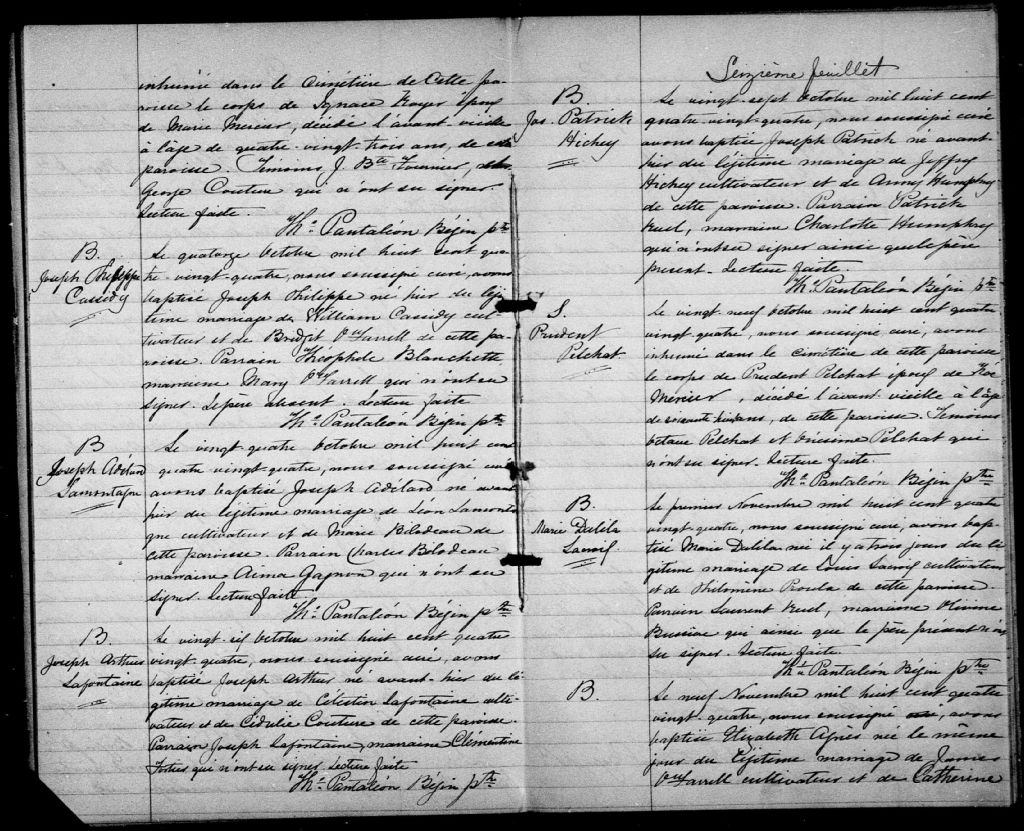 inhumé dans le cimétière de Cette pa-
roisse le corps de Ignace Royer époux
de Marie Mercier, décédé l'avant-vieille
à l'âge de quatre-vingt-trois ans, de cette
paroisse. Temoins J. Bte Fournier,
George Couture qui n'ont su signer.
Lecture faite.
Ths Pantaléon Bégin ptre
B.
Joseph Philippe
Cassidy
Le quatorze Octobre mil huit cent qua-
tre-vingt-quatre, nous soussigné curé, avons
baptisé Joseph Philippe né hier du légi-
time mariage de William Cassidy cul-
tivateur et de Bridget O'Farrell de cette pa-
roisse. Parrain Théophile Blanchette
marraine Mary O'Farrell qui n'ont su
signer. Le père absent. Lecture faite
Ths Pantaléon Bégin ptre
B
Joseph Adélard
Lamontagne
Le vingt-quatre Octobre mil huit cent
quatre vingt-quatre, nous soussigné curé
avons baptisé Joseph Adélard né avant
hier du légitime mariage de Léon Lamonta
gne cultivateur et de Marie Bilodeau de
cette paroisse. Parrain Charles Bolodeau
marraine Aima Gagnon qui n'ont su
signer. Lecture faite.
Ths Pantaléon Bégin ptre
B.
Joseph Arthur
Lafontaine
Le vingt-six Octobre mil huit cent quatre
vingt-quatre, nous soussigné curé, avons
baptisé Joseph Arthur né avant-hier du lé-
gitime mariage de Célestin Lafontaine culti-
vateur et de Cédulie Couture de cette paroisse.
Parrain Joseph Lafontaine, marraine Clémentine
Fortier qui n'ont su signer. Lecture faite
Ths Pantaléon Bégin ptre
Seizième feuillet
B.
Jos. Patrick
Hickey
Le vingt-sept Octobre mil huit cent
quatre-vingt-quatre, nous soussigné curé
avons baptisé Joseph Patrick né avant-
hier du légitime mariage de Jeffrey
Hickey cultivateur et de Anny Humphrey
de cette paroisse. Parrain Patrick
marraine Charlotte Humphrey
qui n'ont su signer ainsi que le père
present. Lecture faite.
Ths Pantaléon Bégin ptre
S.
Prudent
Pelchat.
Le vingt neuf octobre mil huit cent quatre
vingt quatre, nous soussigné curé, avons
inhumé dans le cimétière de cette paroisse
le corps de Prudent Pelchat époux de Zoé
Mercier, décédé l'avant-vieille à l'âge
de soixante ans, de cette paroisse. Temoins
Octave Pelchat et Onésime Pelchat qui
n'ont su signer. Lecture faite.
Ths Pantaléon Bégin ptre
B.
Marie Dalila
Le premier Novembre mil huit cent quatre
vingt-quatre, nous soussigné curé, avons bap-
tisé Marie Dalila née il y a trois jours du lé-
gitime mariage de Louis cultivateur
et de Philomène de cette paroisse
Parrain Laurent marraine Olivine
qui ainsi que le père présent n'ont
su signer. Lecture faite.
Ths Pantaléon Bégin ptre
B.
Le neuf Novembre mil huit cent quatre
vingt-quatre, nous soussigné curé, avons
baptisé Elizabeth Agnes née le même
jour du légitime mariage de James
O'Farrell cultivateur et de Catherine